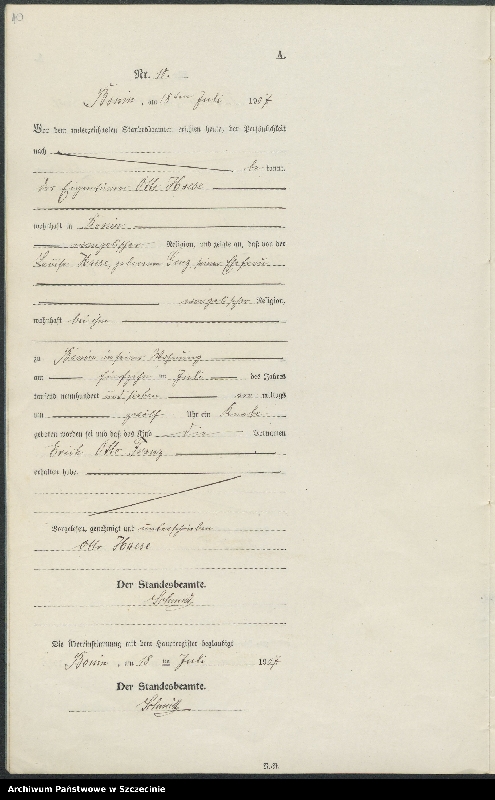 10
A.
Nr. 10.
Bonin, am 18ten Juli 1907
Vor dem unterzeichneten Standesbeamten erschien heute, der Persönlichkeit
nach
be kannt,
der Eigentümer Otto Haese
wohnhaft in Bonin
evangelischer Religion, und zeigte an, daß von der
Haese, geborenen seiner Ehefrau
evangelischer Religion,
wohnhaft bei ihm
zu Bonin in seiner Wohnung
am fünfzehn ten Juli des Jahres
tausend neunhundert und sieben mittags
um zwölf Uhr ein Knabe
geboren worden sei und daß das Kind die Vornamen
Erich Otto Franz
erhalten habe.
Vorgelesen, genehmigt und unterschrieben
Otto Haese
Der Standesbeamte.
Die Übereinstimmung mit dem Hauptregister beglaubigt
Bonin, am 18 ten Juli 1907
Der Standesbeamte.
Archiwum Państwowe w Szczecinie